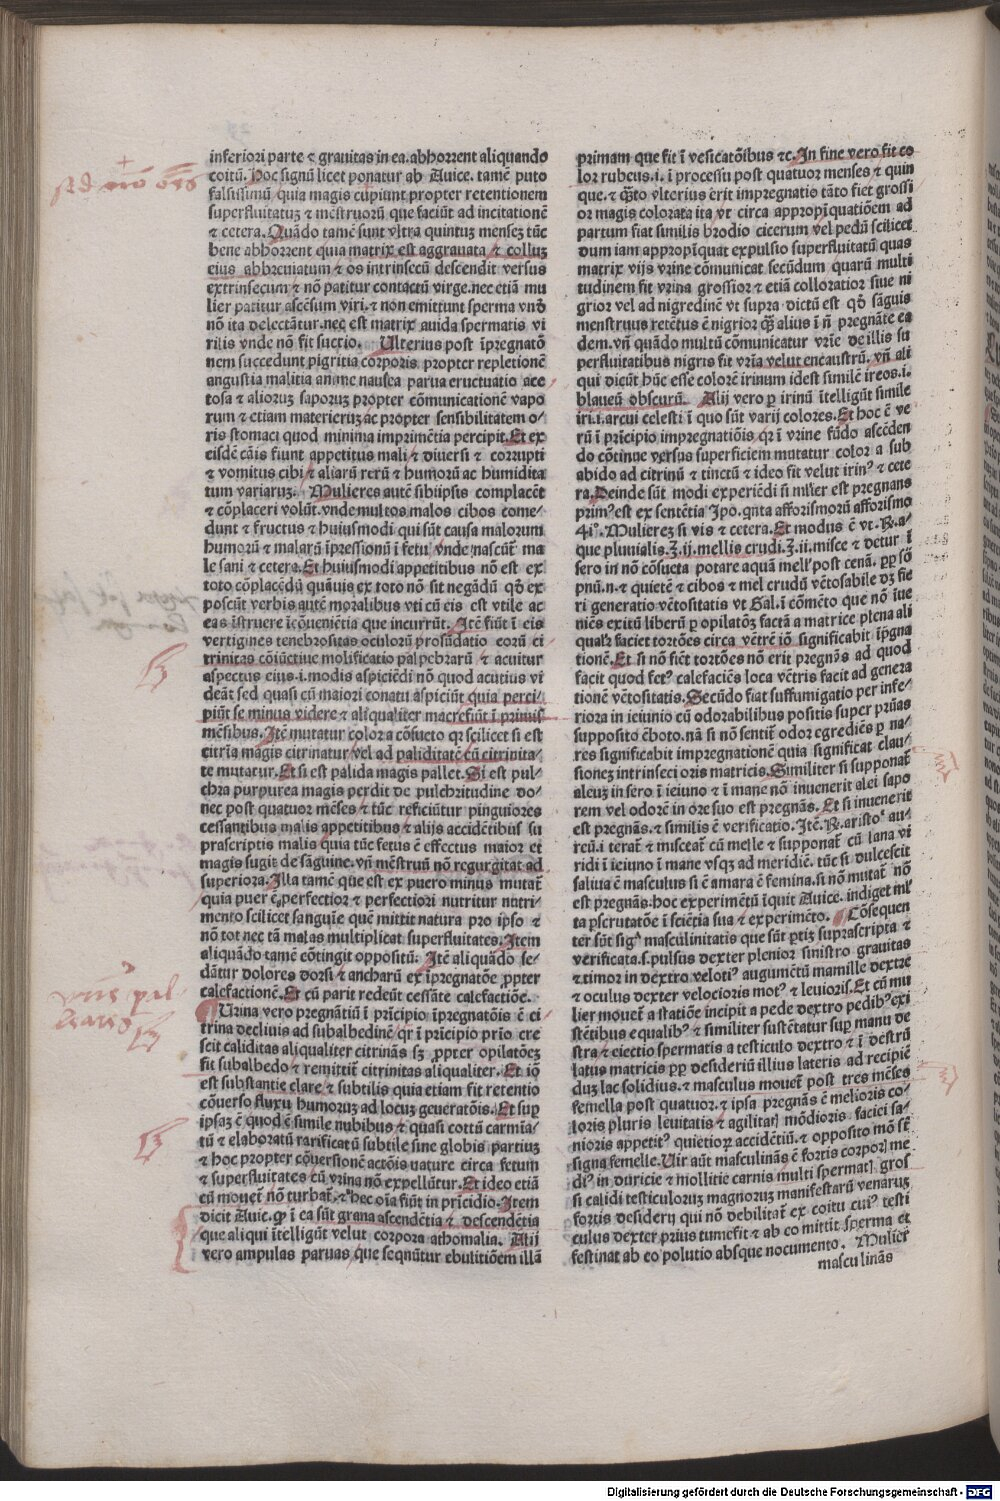 inferiori parte ⁊ grauitas in ea. abhorrent aliquando
coitū. Hoc signū licet ponatur ab Auice. tamē puto
falsissimū quia magis cupiunt propter retentionem
superfluitatuꝫ ⁊ mēstruorū que faciūt ad incitationē
⁊ cetera. Quādo tamē sunt vltra quintuꝫ menseꝫ tūc
bene abhorrent quia matrix est aggrauata ⁊ colluꝫ
eius abbreuiatum ⁊ os intrinsecū descendit versus
extrinsecum ⁊ nō patitur contactū virge. nec etiā mu
lier patitur ascēsum viri. ⁊ non emittunt sperma vnd
nō ita delectātur. nec est matrix auida spermatis vi
rilis vnde nō fit suctio. Ulterius post īpregnatō
nem succedunt pigritia corporis propter repletionē
angustia malitia anime nausea parua eructuatio ace
tosa ⁊ alioruꝫ saporuꝫ propter cōmunicationē vapo
rum ⁊ etiam materieruꝫ ac propter sensibilitatem o-
ris stomaci quod minima imprimētia percipit. Et ex
eisdē cāis fiunt appetitus mali ⁊ diuersi ⁊ corrupti
⁊ vomitus cibi ⁊ aliarū rerū ⁊ humorū ac humidita
tum variaruꝫ. Mulieres autē sibiipsis complacēt
⁊ cōplaceri volūt. vnde multos malos cibos come-
dunt ⁊ fructus ⁊ huiusmodi qui sūt causa malorum
humorū ⁊ malarū īpressionū ī fetu vnde nascūt ma
le sani ⁊ cetera. Et huiusmodi appetitibus nō est ex
toto cōplacēdū quāuis ex toto nō sit negādū qd ex
poscūt verbis autē moralibus vti cū eis est vtile ac
eas īstruere īcōueniētia que incurrūt. Itē fiūt ī eis
vertigines tenebrositas oculorū profūdatio eorū ci
trinitas cōiūctiue molificatio palpebrarū ⁊ acuitur
aspectus eius. i. modis aspiciēdi nō quod acutius vi
deāt sed quasi cū maiori conatu aspiciūt quia perci-
piūt se minus videre ⁊ aliqualiter macrefiūt ī primis
mēsibus. Itē mutatur color a cōsueto qr scilicet si est
citrīa magis citrinatur vel ad paliditatē cū citrinita-
te mutatur. Et si est palida magis pallet. Si est pul-
chra purpurea magis perdit de pulchritudine do-
nec post quatuor mēses ⁊ tūc reficiūtur pinguiores
cessantibus malis appetitibus ⁊ alijs accidētibus su
prascriptis malis quia tūc fetus ē effectus maior et
magis sugit de sāguine. vn̄ mēstruū nō regurgitat ad
superiora. Illa tamē que est ex puero minus mutat
quia puer ē perfectior ⁊ perfectiori nutritur nutri-
mento scilicet sanguīe quē mittit natura pro ipso ⁊
nō tot nec tā malas multiplicat superfluitates. Item
aliquādo tamē cōtingit oppositū. Itē aliquādo se-
dātur dolores dorsi ⁊ ancharū ex īpregnatōe ꝓpter
calefactionē. Et cū parit redeūt cessāte calefactiōe.
Urina vero pregnātiū ī prīcipio īpregnatōis ē ci
trina decliuis ad subalbedinē qr ī principio prio cre
scit caliditas aliqualiter citrināns sꝫ ꝓpter opilatōeꝫ
fit subalbedo ⁊ remittit citrinitas aliqualiter. Et iō
est substantie clare ⁊ subtilis quia etiam fit retentio
cōuerso fluxu humoruꝫ ad locuꝫ geueratōis. Et sup
ipsaꝫ ē quod ē simile nubibus ⁊ quasi cottū carmīa-
tū ⁊ elaboratū rarificatū subtile sine globis partiuꝫ
⁊ hoc propter cōuersionē actōis nature circa fetum
⁊ superfluitates cū vrina nō expellūtur. Et ideo etiā
cū mouet nō turbat. ⁊ hec oīa fiūt in prīcidio. Item
dicit Auic. ꝙ ī ea sūt grana ascendētia ⁊ descendētia
que aliqui ītelligūt velut corpora athomalia. Alij
vero ampulas paruas que seqnūtur ebulitiōem illā
primam que fit ī vesicatōibus ⁊c. In fine vero fit co
lor rubeus. i. ī processu post quatuor menses ⁊ quin
que. ⁊ q̄to vlterius erit impregnatis tāto fiet grossi
or magis colorata ita vt circa appropīquatiōem ad
partum fiat similis brodio cicerum vel pedū scilicet
dum iam appropīquat expulsio superfluitatū quas
matrix vijs vrine cōmunicat secūdum quarū multi
tudinem fit vrina grossior ⁊ etiā colloratior siue ni
grior vel ad nigredinē vt supra dictū est qd sāguis
menstruus retētus ē nigrior q̄ꝫ alius ī n̄ pregnāte ea
dem. vn̄ quādo multū cōmunicatur vrīe de illis su
perfluitatibus nigris fit vrīa velut encaustrū. vn̄ ali
qui dicūt hūc esse colorē irinum idest similē ireos. i.
blaueū obscurū. Alij vero per irinū ītelligūt simile
iri. i. arcui celesti ī quo sūt varij colores. Et hoc ē ve
rū ī prīcipio impregnatiōis qr ī vrine fūdo ascēden
do cōtinue versus superficiem mutatur color a sub
abido ad citrinū ⁊ tinctū ⁊ ideo fit velut irinꝰ ⁊ cete
ra. Deinde sūt modi experiēdi si mlier est pregnans
primꝰ est ex sentētia Ipo. qnta afforismorū afforismo
41º. Mulierez si vis ⁊ cetera. Et modus ē vt. R. a-
que pluuialis. ℥. ij. mellis crudi. ℥. ii. misce ⁊ detur ī
sero in nō cōsucta potare aquā mellꝰ post cenā. ꝓp sō
pnū. n. ⁊ quietē ⁊ cibos ⁊ mel crudū vētosabile dꝫ fie
ri generatio vētositatis vt Gal. ī cōmēto que nō īue
niēs exitū liberū ꝑ opilatōꝫ factā a matrice plena ali
qualꝛ faciet tortōes circa vētrē iō significabit īpgna
tionē. Et si nō fiēt tortōes nō erit pregnās ad quod
facit quod fetꝰ calefaciēs loca vētris facit ad genera
tionē vētositatis. Secūdo fiat suffumigatio per infe-
riora in ieiunio cū odorabilibus positis super prūas
supposito ēboto. nā si nō sentit odor egrediēs ꝑ na-
res significabit impregnationē quia significat clau-
sioneꝫ intrinseci oris matricis. Similiter si supponat
aleuꝫ in sero ī ieiuno ⁊ ī mane nō inuenerit alei sapo
rem vel odorē in ore suo est pregnās. Et si inuenerit
est pregnās. ⁊ similis ē verificatio. Itē. R. aristoˡ au-
reū. i. terat ⁊ misceat cū melle ⁊ supponat cū lana vi
ridi ī ieiuno ī mane vsqꝫ ad meridiē. tūc si dulcescit
saliua ē masculus si ē amara ē femina. si nō mutat nō
est pregnās. hoc experimētū īquit Auice. indiget ml
ta ꝑscrutatōe ī sciētia sua ⁊ experimēto. Cōsequen
ter sūt sigª masculinitatis que sūt ꝑtiꝫ suprascripta ⁊
verificata. s. pulsus dexter plenior sinistro grauitas
⁊ timor in dextro velotiꝰ augumētū mamille dextre
⁊ oculus dexter velocioris motꝰ ⁊ leuioris. Et cū mu
lier mouet a statiōe incipit a pede dextro pedibꝰ exi
stētibus equalibꝰ ⁊ similiter sustētatur suꝑ manu de
stra ⁊ eiectio spermatis a testiculo dextro ⁊ ī destrū
latus matricis ꝓp desideriū illius lateris ad recipiē
duꝫ lac solidius. ⁊ masculus mouet post tres mēses
femella post quatuor. ⁊ ipsa pregnās ē melioris co-
loris pluris leuitatis ⁊ agilitat mōdioris faciei sa-
nioris appetitꝰ quietioꝝ accidētiū. ⁊ opposito mō sūt
signa femelle. Uir aūt masculinās ē fortis corpoꝝ me
diꝰ in duricie ⁊ mollitie carnis multi spermatꝝ gros
si calidi testiculoruꝫ magnoruꝫ manifestarū venaruꝫ
fortis desiderij qui nō debilitat ex coitu cuiꝰ testi
culus dexter prius tumefit ⁊ ab eo mittit sperma et
festinat ab eo polutio absque nocumento. Mulier
masculinās
Digitalisierung gefördert durch die Deutsche Forschungsgemeinschaft - DFG